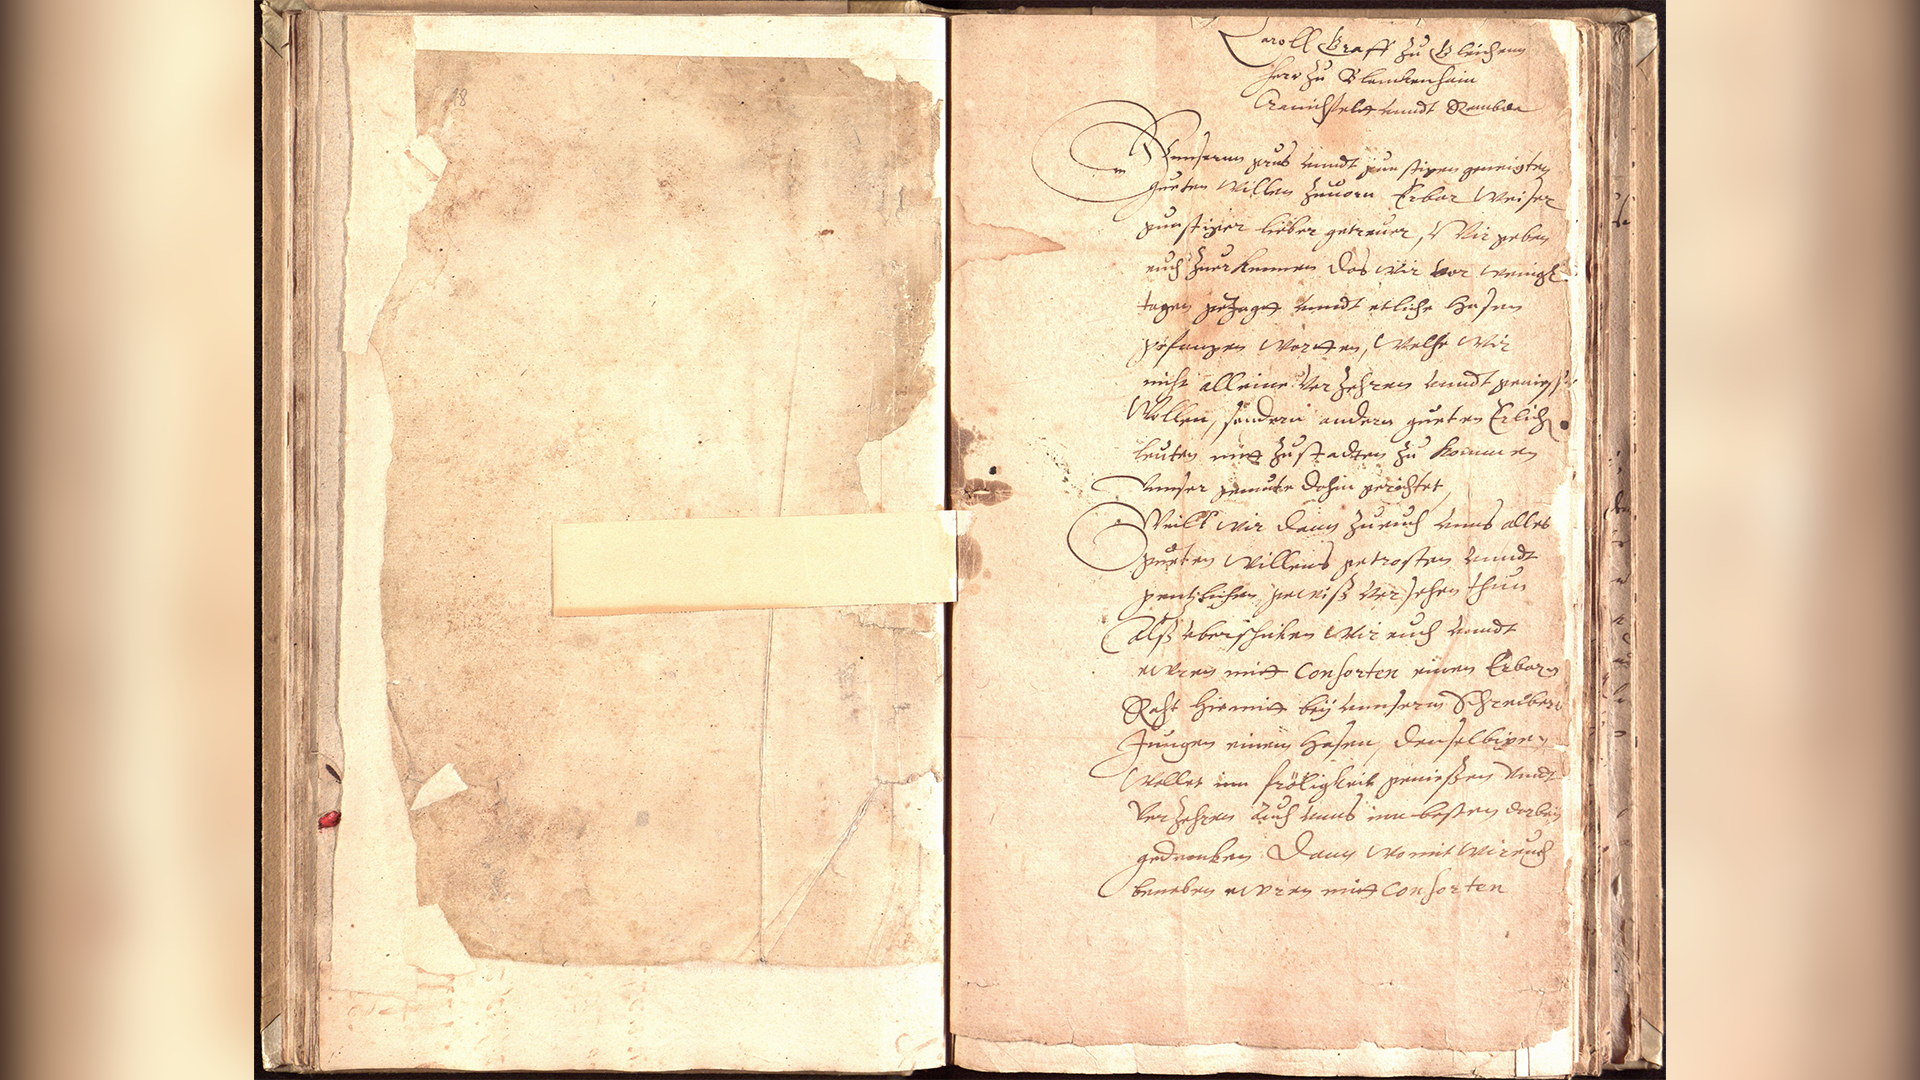 18
Caroll Graff zu Gleichenn
Herr zu Blanckenhain
Cranichfeldt unndt Rembda
Unnsernn grus unndt gunstigen geneigten
gueten Willen zuuorn Erbar Weiser
gunstiger lieber getreuer, Wir geben
euch zuerkennen das wir vor wenigk
tagen gejagtt unndt etliche Hasen
gefangen wortten, Welche Wir
nicht alleine verzehren unndt geniess
Wollen, sondern andern gueten Erlich
leuten mitt zustadten zu kommen
Unnser gemuete dohin gerichtet,
Weill wir dann zu euch unns alles
gueten Willens getrosten unndt
gentzlichen gewiß versehen thun
Alß uberschicken Wir euch unndt
ewren mitt Consorten einen Erbarn
Raht hiemitt bey unnserm Schreiber
Jungen einen Hasen, denselbigen
Wollet inn fröligkeit genießen undt
verzehren auch unns inn besten darbey
gedencken. Dann Womit Wir euch
beneben ewren mitt Consorten